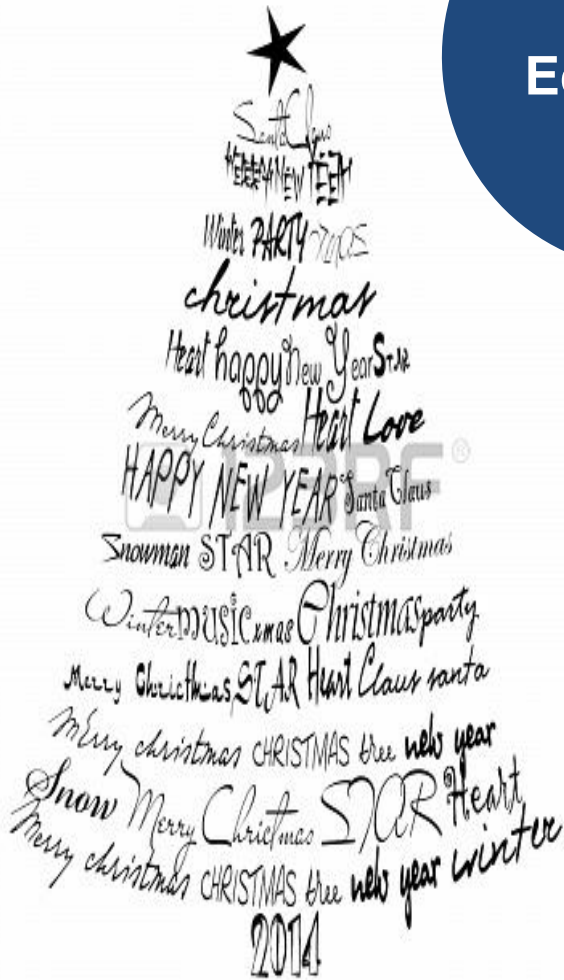 E
Santa Claus
NEW
Winter PARTY
christmas
Heart happy New Year STAR
Merry Christmas Heart Love
HAPPY NEW YEAR Santa Claus
123RF®
Snowman STAR Merry Christmas
Winter music xmas Christmas party
Merry Chricthias STAR Heart Claus santa
Merry christmas CHRISTMAS tree new year
Snow Merry Christmas STAR Heart
Merry christmas CHRISTMAS tree new year winter
2014